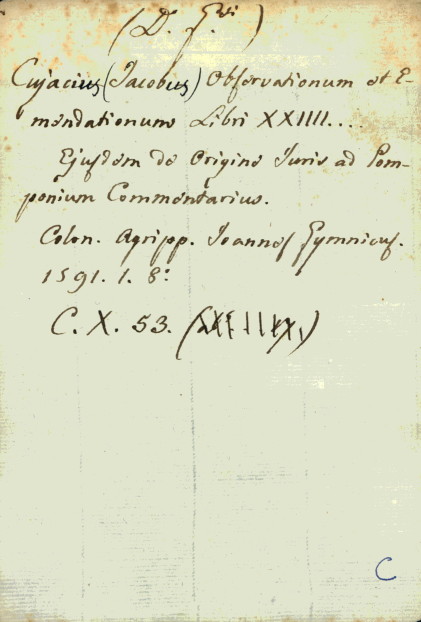 (D. G.vi)
Cujacius (Jacobus) Observationum et E-
mendationum Libri XXIIII....
Ejusdem de Origine Juris ad Pom-
ponium Commentarius.
Colon. Agripp. Joannes Gymnicus.
1591. 1. 8.°
C. X. 53.
C